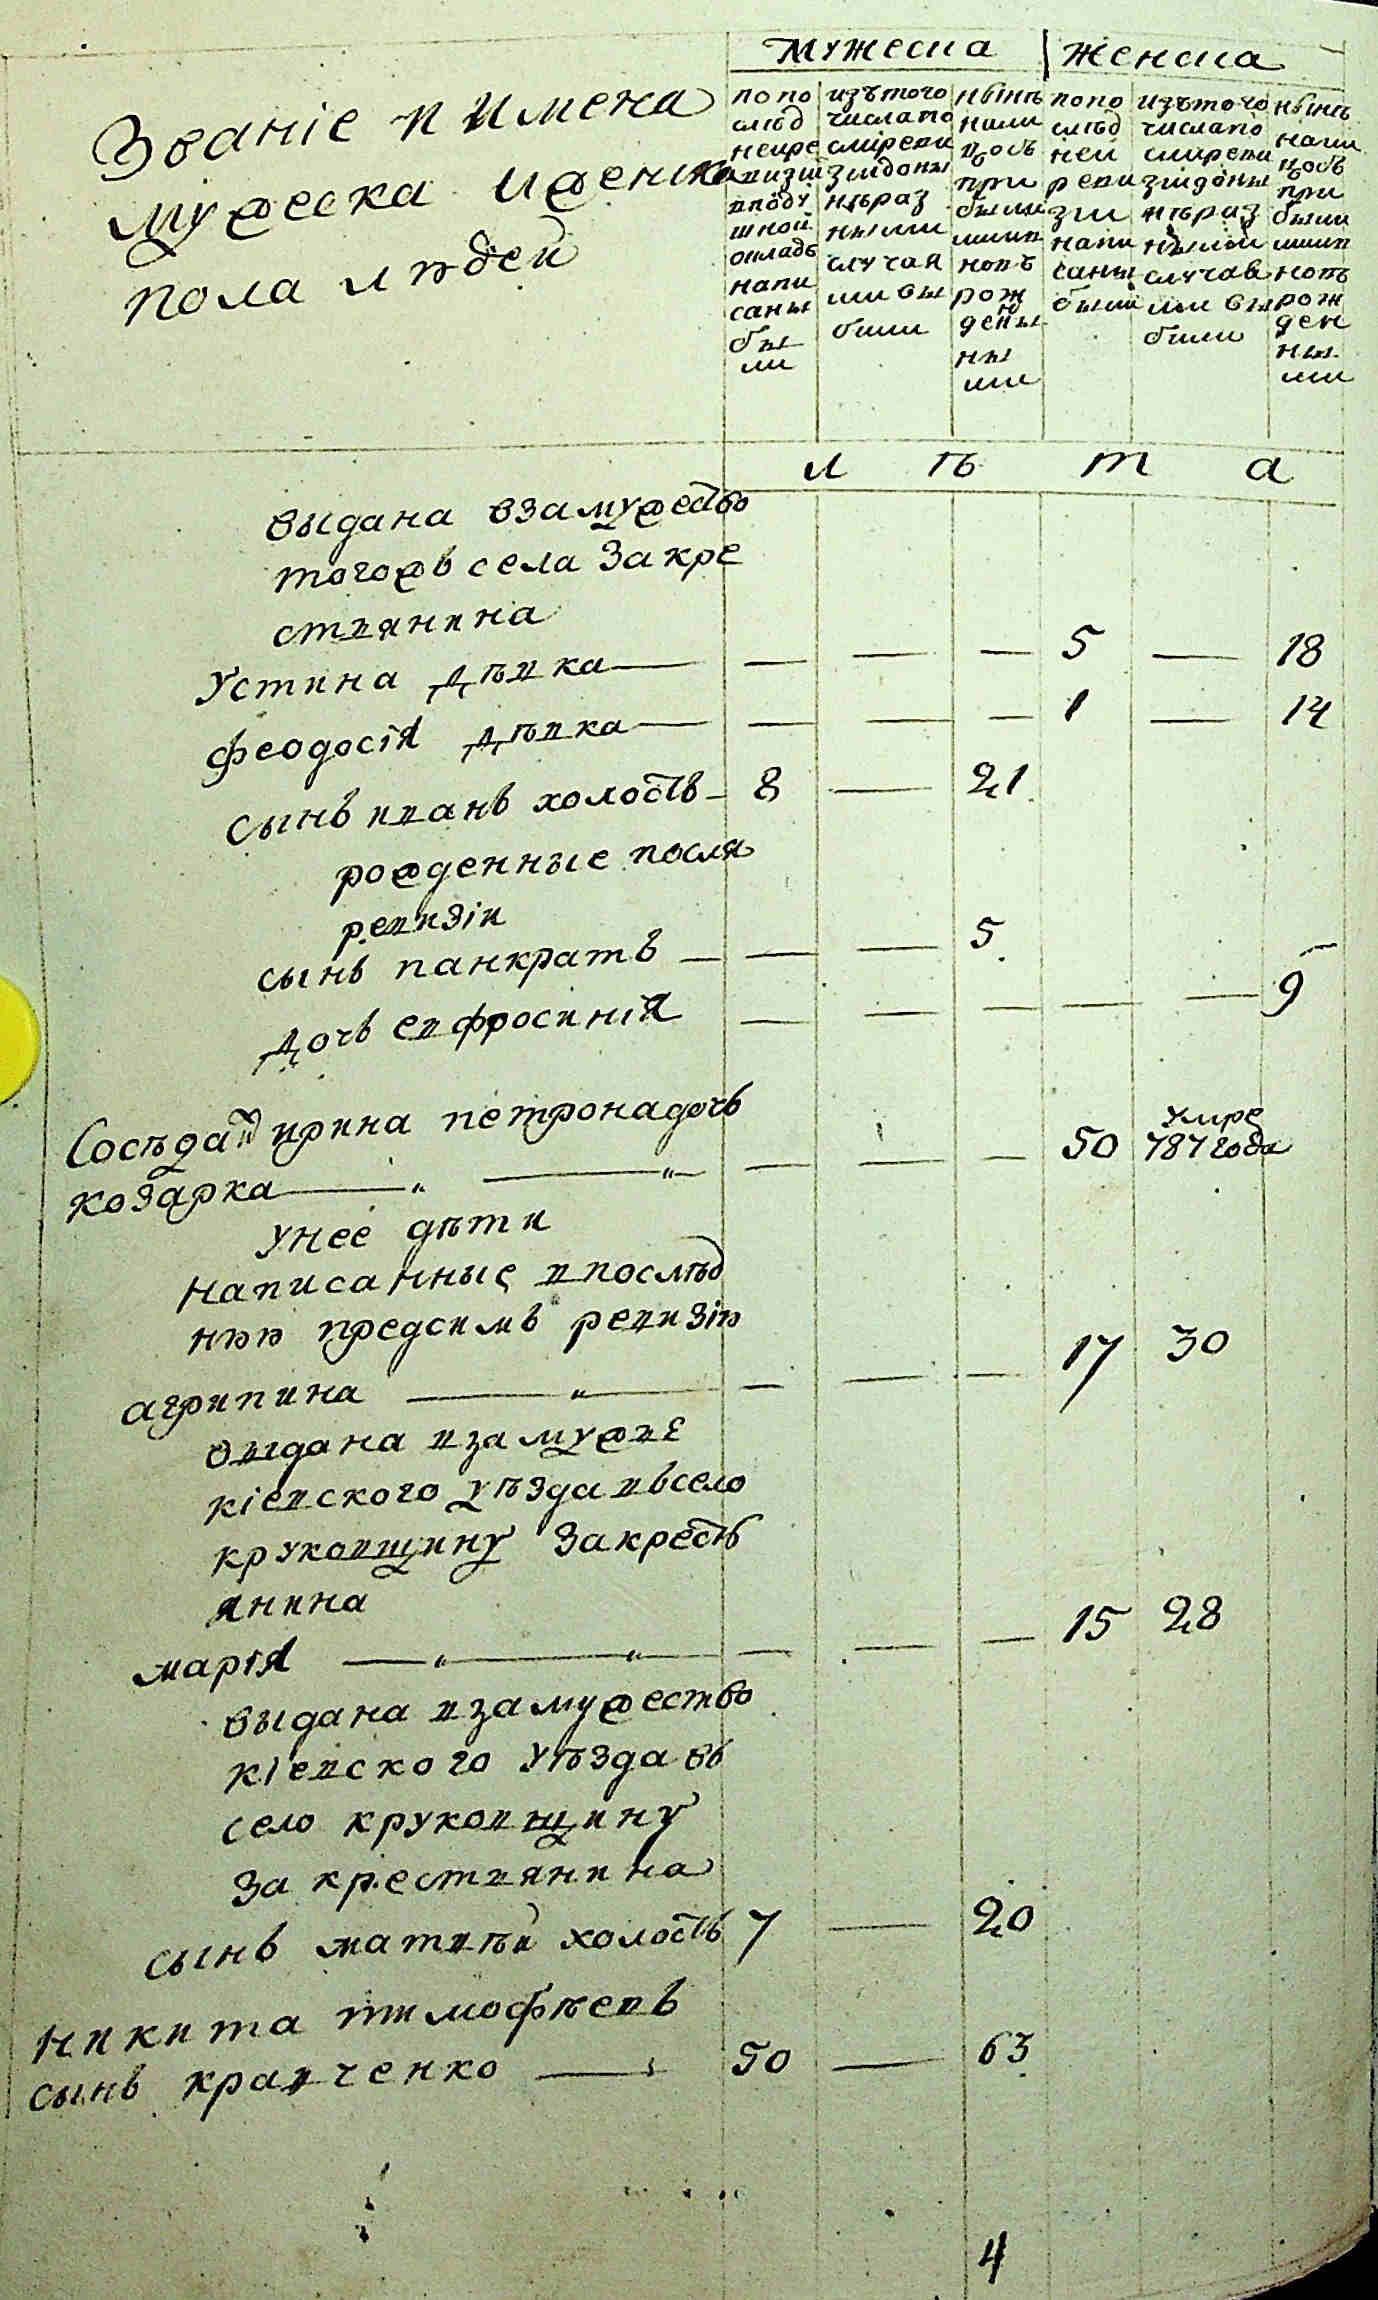 мужеска женска
Званіе и Имена
мужеска иженска
пола людей
попо
слѣд
нейре
визіи
вподу
шной
окладъ
напи
саны
бы
ли
изътого
числапо
сїюреви
зіюдоны
нѣраз
ными
случая
ми вы
были
нынѣ
нали
цо съ
при
былы
мии
новъ
рож
дены
ны
ми
попо
слѣд
ней
реви
зіи
напи
саны
были
изътого
числапо
сіюреви
зіюдоны
нѣраз
ными
случая
ми вы
были
нынѣ
нали
цось
при
былы
мии
новъ
рож
ден
ны
ми
л ѣ т а
выдана взамужество
тогожъ села закре
стиянина
Устина дѣвка — — — — 5 — 18
феодосія дѣвка — — — — 1 — 14
сынъ иванъ холостъ 8 — 21
рожденные посля
ревизіи
сынъ панкратъ — — — 5
дочъ евфросинія — — — — — 9
Сосѣда ирина петронадочъ
козарка — — — — 50 умре 787 года
унее дѣти
написанные впослѣд
нюю предсимъ ревизію
агрипина — — — — 17 30
выдана взамужве
кіевского уѣзда въсело
круковщину закресть
янина
марія — — — — 15 28
выдана взамужество
кіевского уѣзда въ
село круковщину
за крестиянина
сынъ матвѣй холостъ 7 — 20
никита тимофѣевъ
сынъ кравченко — 50 — 63
4